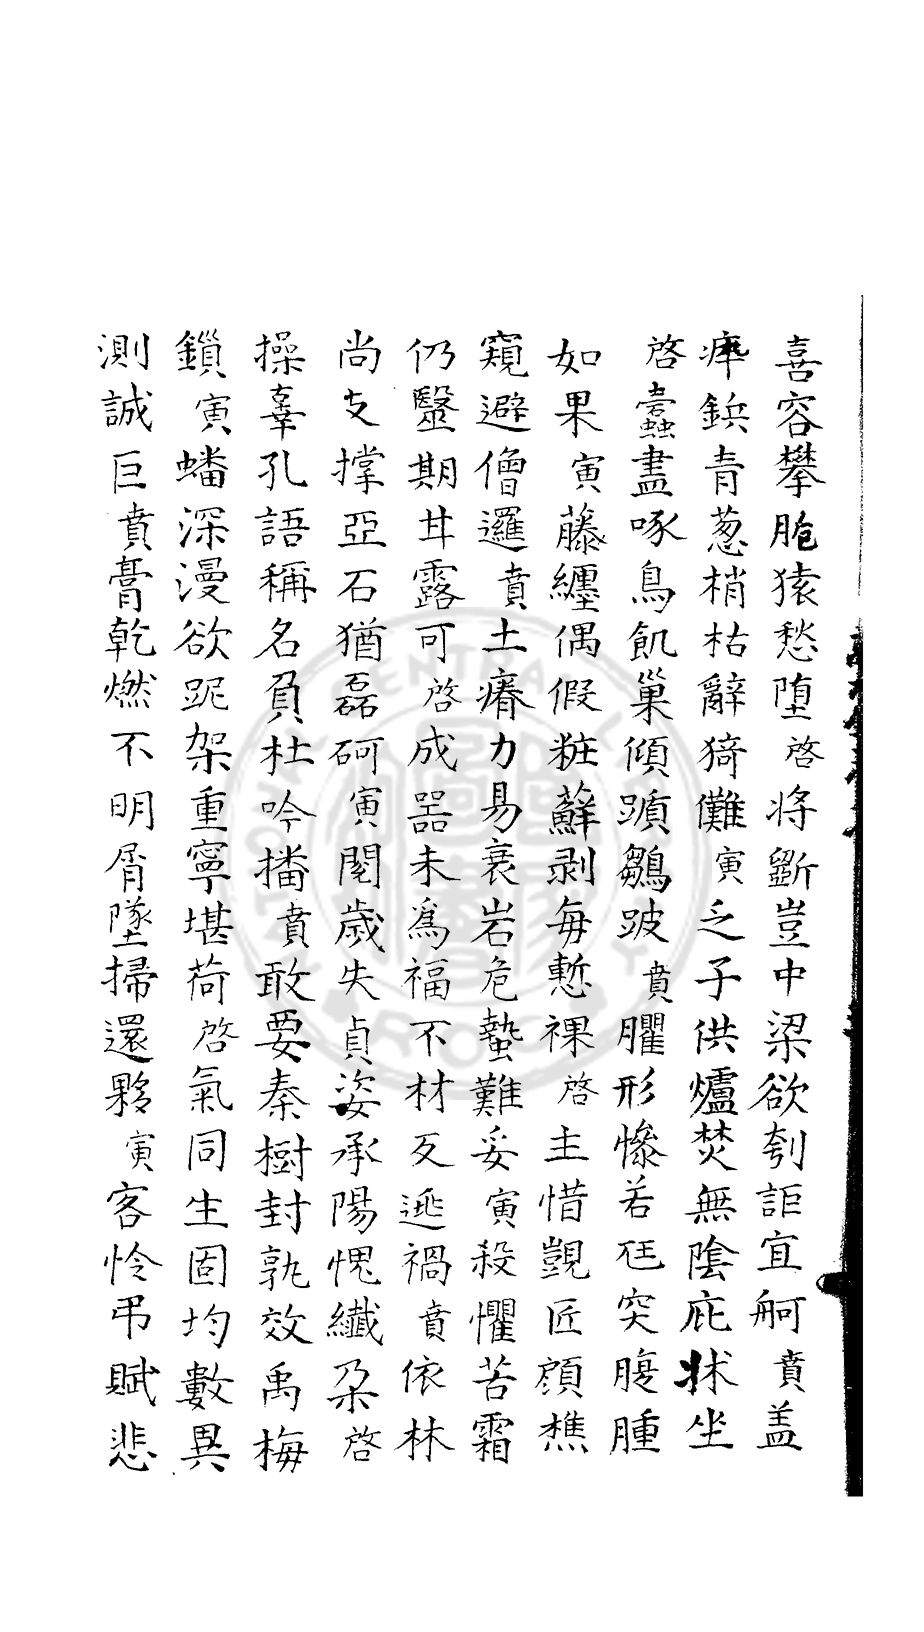 喜容攀脆猿愁堕啓將斷豈中梁欲刳詎宜舸賁盖
瘅鋲青葱梢枯辭猗儺寅之子供爐焚無陰庇牀坐
啓蠹盡啄鳥飢巢傾顗鶵跛賁臞形慘若尫突腹腫
如果寅藤纏偶假粧蘚剥每慙裸啓主惜覬匠顔樵
窺避僧邏賁土瘠力易衰岩危蟄難妥寅殺懼苦霜
仍毉期甘露可啓成噐未爲福不材叐逃禍賁依林
尚支撑亞石猶磊砢寅閲歲失貞姿承陽愧纖朶啓
操辜孔語稱名負杜吟播賁敢要秦樹封孰效禹梅
鎖寅蟠深漫欲跜架重寧堪荷啓氣同生固均數異
測誠巨賁膏乾燃不明屑墜掃還夥寅客怜弔賦悲